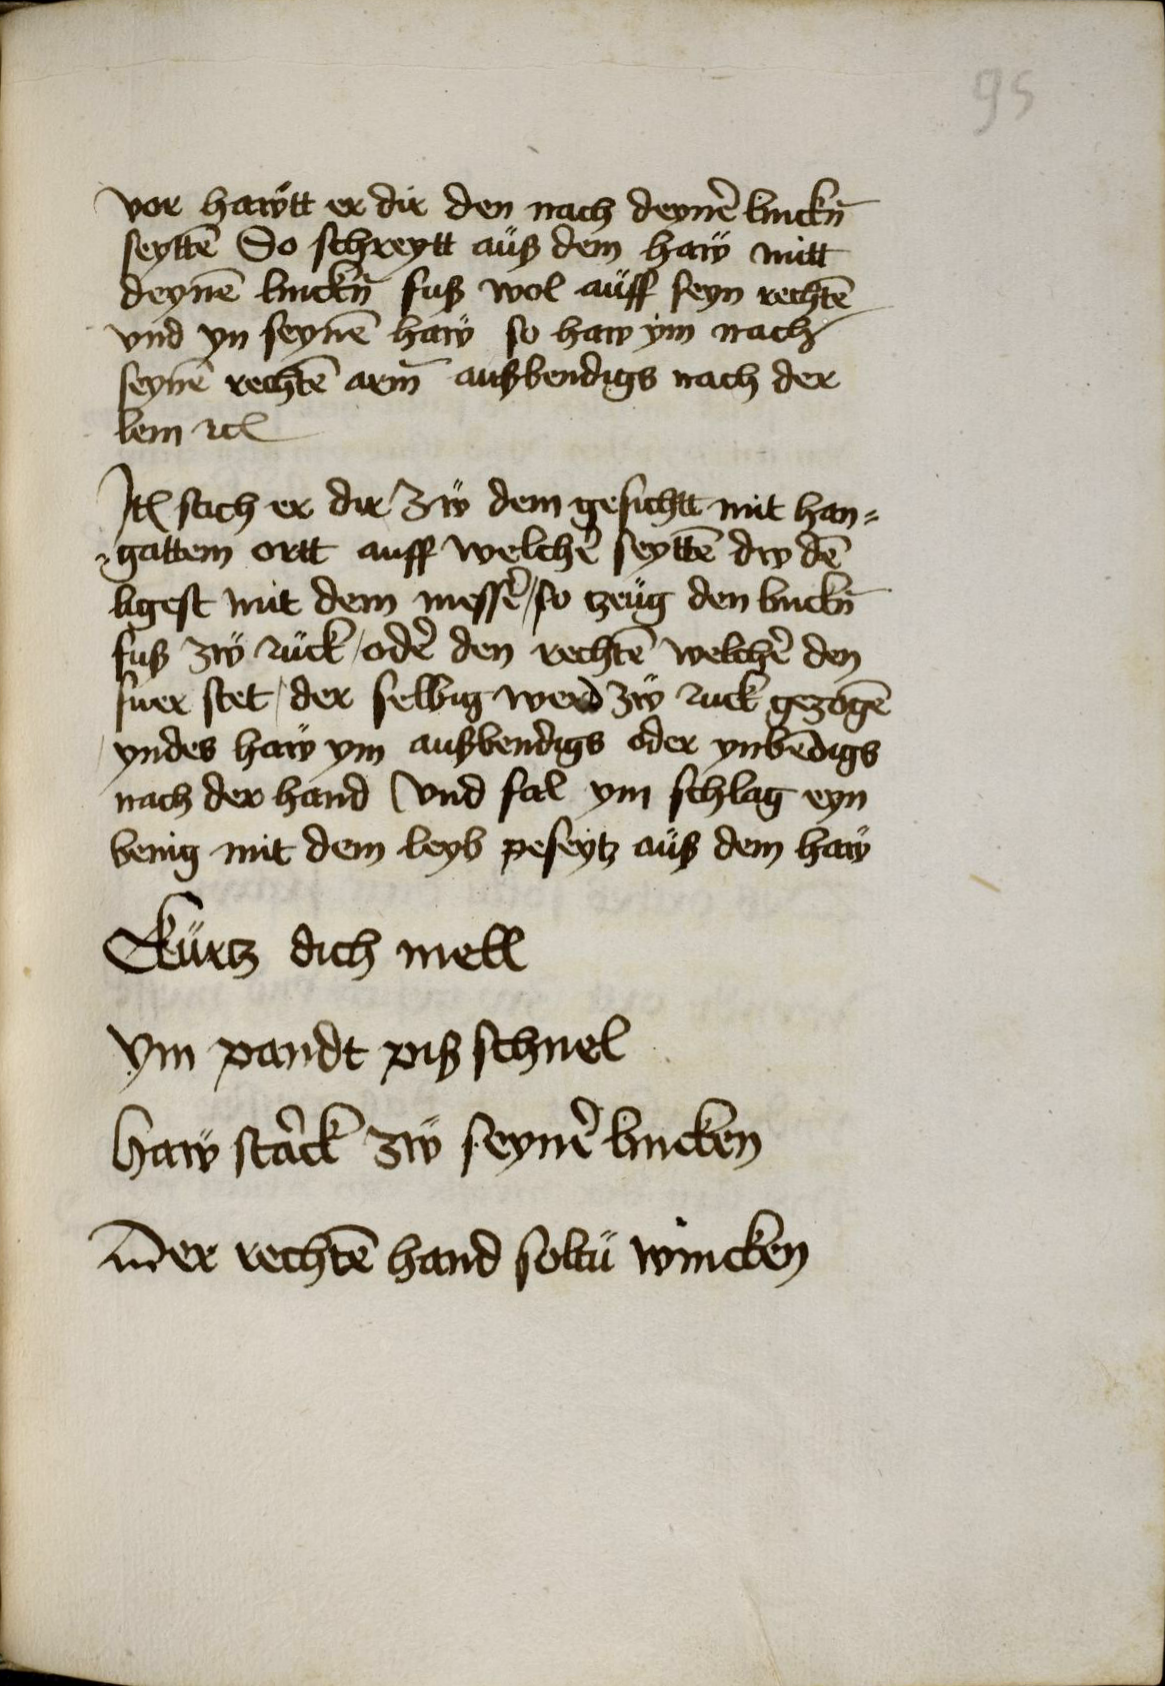 95
vor haẅtt er dir den nach deynē linckn̄
seyttē So schreytt aüß dem haẅ mitt
deynē linckn̄ fuß wol aüff seyn rechtē
vnd yn seynē haẅ so haw ym nach
seynē rechtē arm̄ außbendigs nach der
lem rc
Itē stich er dir zẅ dem gesichtt mit han=
gattem ortt auff welchē seyttē dw dē
ligest mit dem messē / so tzeüg den linckn̄
fuß zẅ rück / odē den rechtē welchē den
fuer stet / der selbig werd zẅ ruck gezogē
yndes haẅ ym außbendigs oder ynbēdigs
nach der hand Vnd fal ym schlag eyn
benig mit dem leyb peseytz aüß dem haẅ
Kürtz dich mell
Ym pandt piß schnel
Haẅ starck zẅ seynē lincken
Der rechtē hand soltü wincken